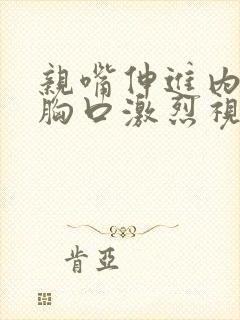 親嘴伸進内
胸口激烈視
肯亞